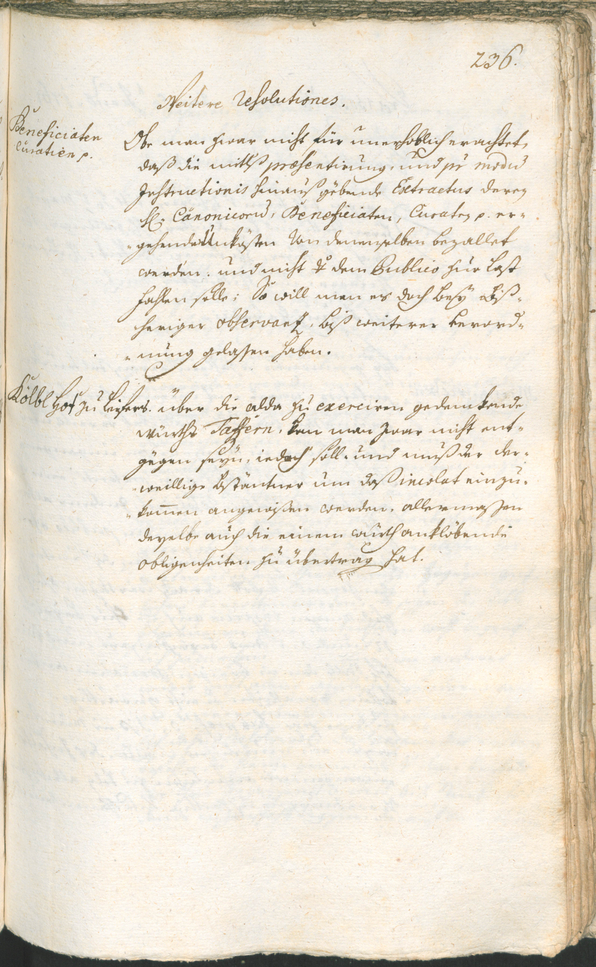 236.
Weitere Resolutiones.
Beneficiaten
Curatien p.
Obe man zwar nicht für unerheblich erachtet,
daß die mitls præsentirung, und per modum
Instructionis hinaus gebende Extractus deren
H: Canonicorum, Beneficiaten, Curaten p. er-
gehende Unkösten von denenselben bezallet
werden. und nicht dem Publico zur Last
fahlen solle; So will man es doch bey biß-
heriger observanz, biß weiterer Verord-
nung gelassen haben.
Kölbl Hof zu Leifers.
über die alda zu exerciren gedenkende
würths Taffern, kan man zwar nicht ent-
gegen seyn, iedoch soll und muß der der-
weillige Bständtner um daß incolat einzu-
kommen angewisen werden. allermassen
derselbe auch die einem würth anklebende
obligenheiten zu übertrag hat.